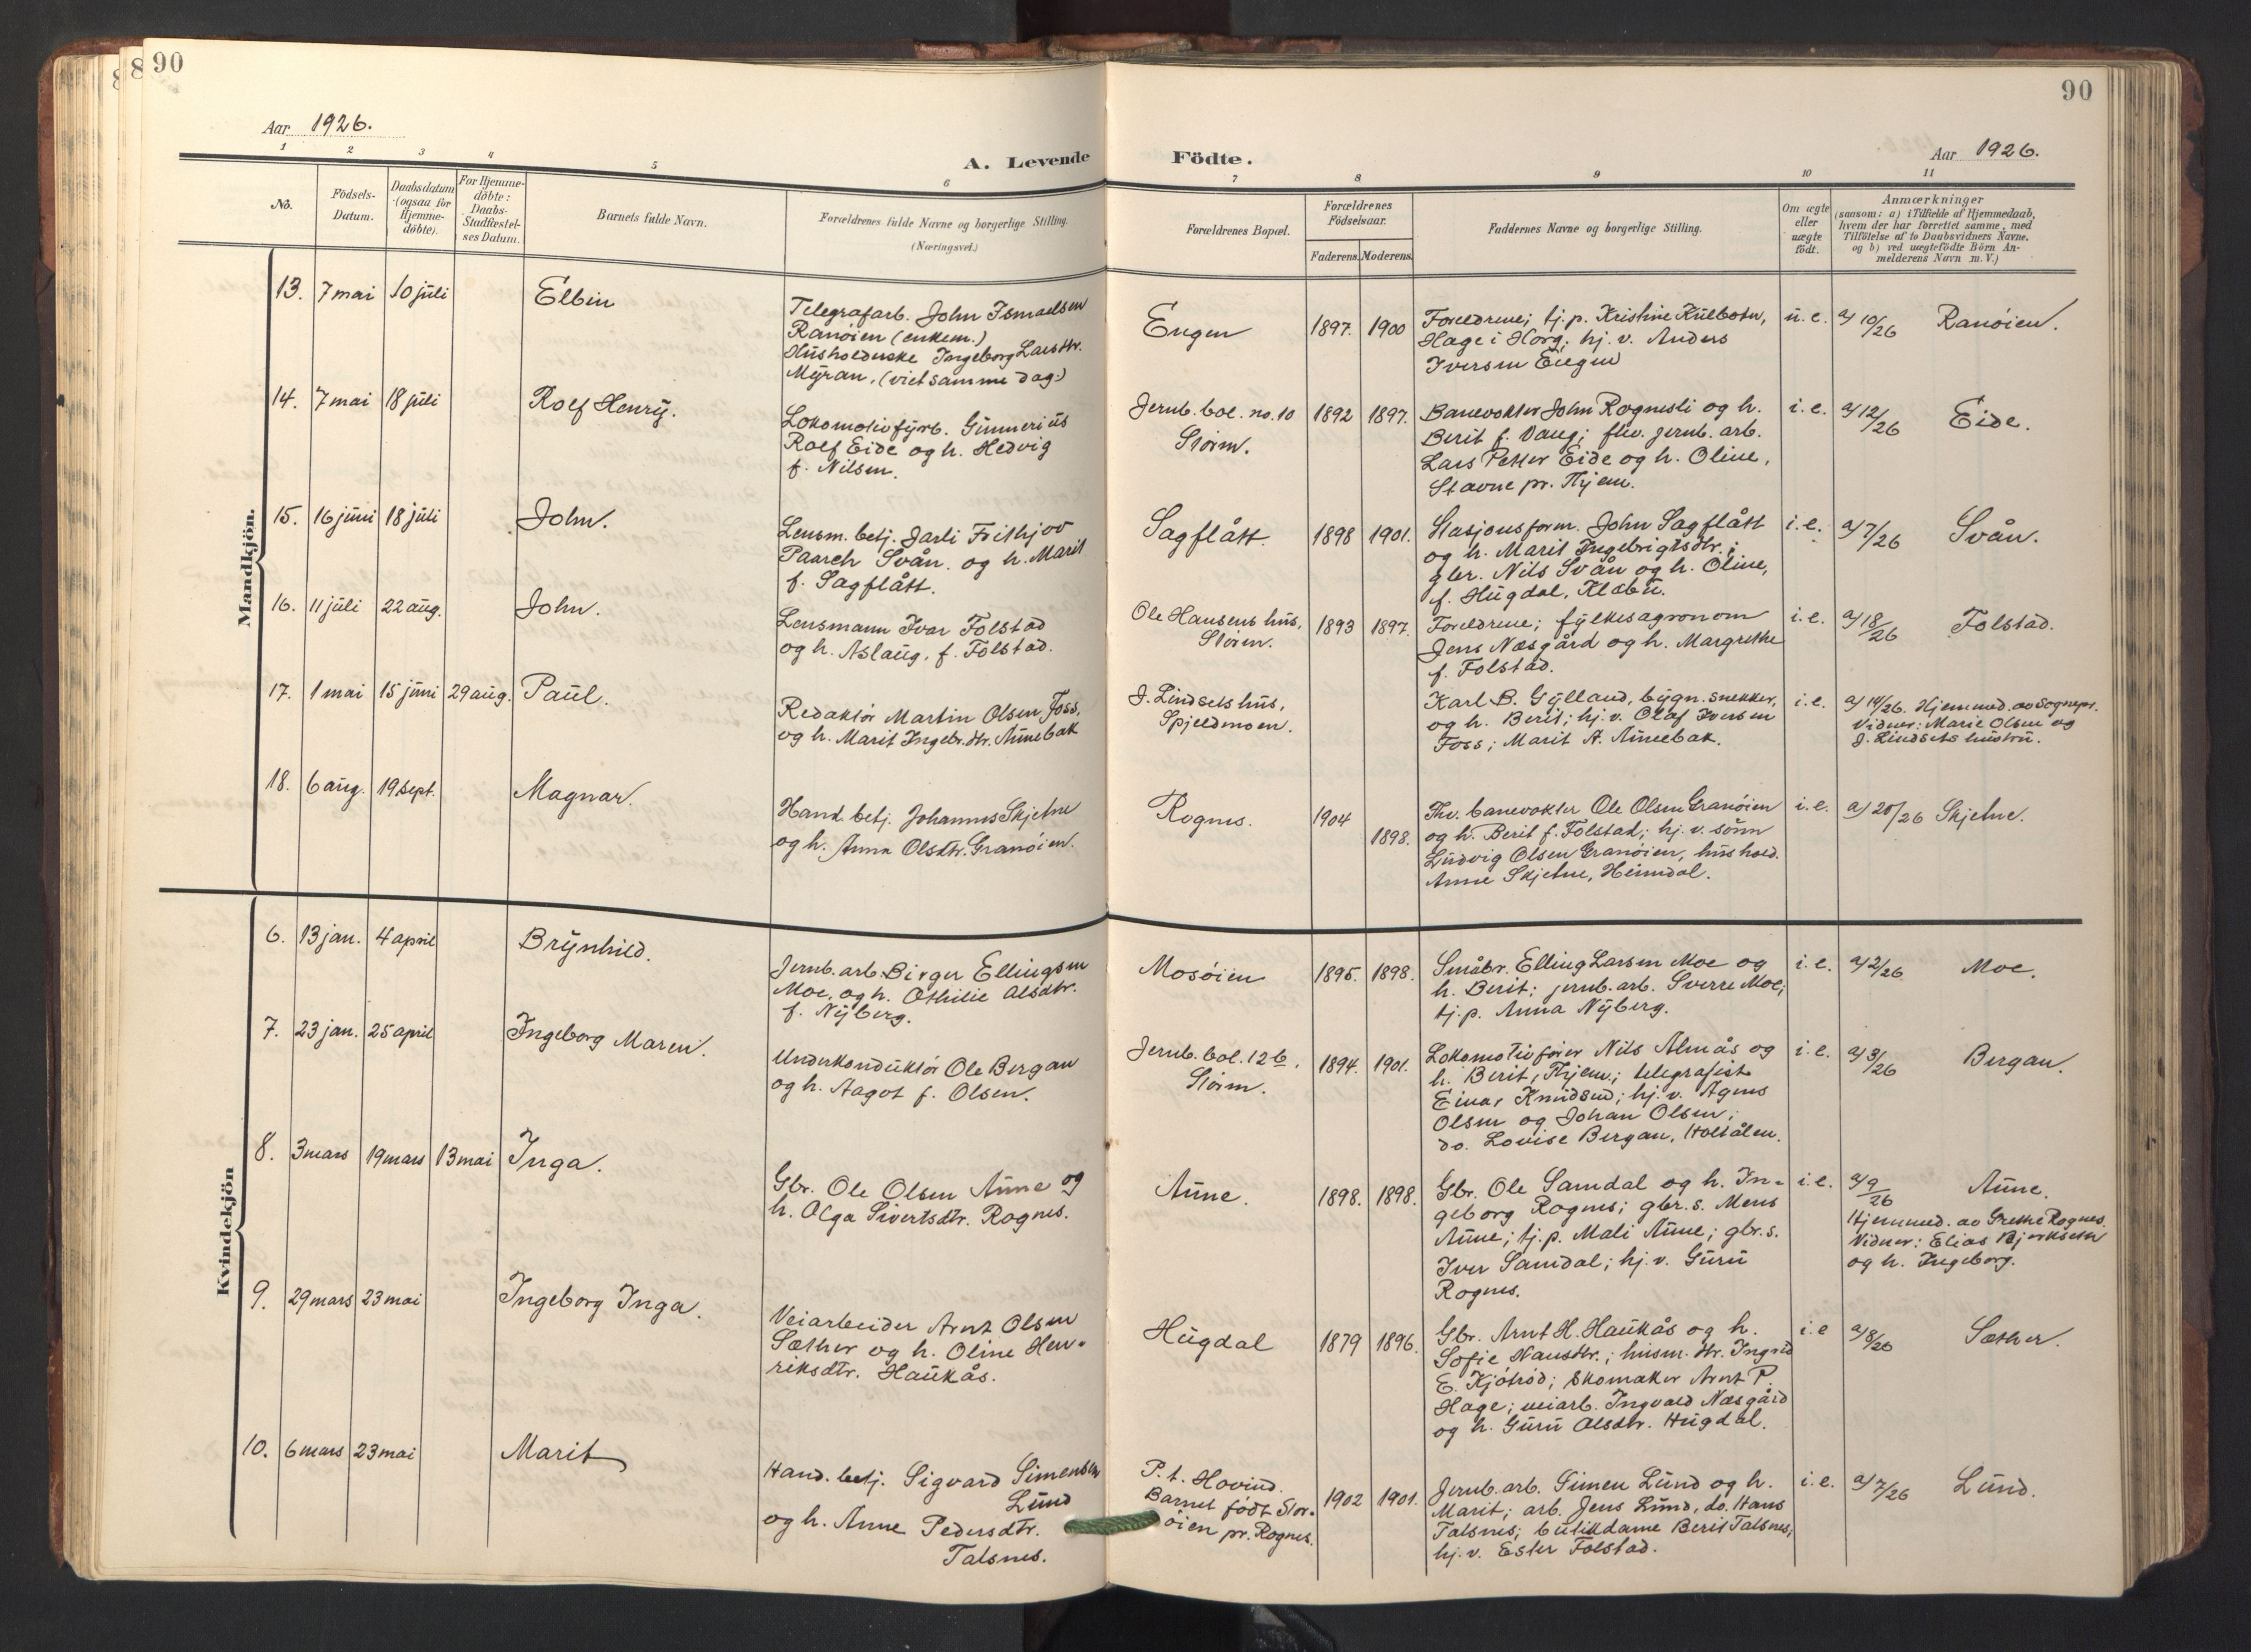 90
Aar 1926.
A. Levende
1 2 3 4 5 6
No.
Födsels-
Datum.
Daabsdatum
(ogsaa for
Hjemme-
döbte).
For Hjemme-
döbte:
Daabs-
Stadfæstel-
ses Datum.
Barnets fulde Navn.
Forældrenes fulde Navne og borgerlige Stilling.
(Næringsvei.)
Mandkjön.
13. 7 mai 10 juli Elbin
Telegrafarb. John Ismaelsen
Ranöien (enkem.)
Husholderske Ingeborg Larsdtr.
Myran, (viet samme dag.)
14. 7 mai 18 juli Rolf Henry.
Lokomotivfyrb. Gunnerius
Rolf Eide og h. Hedvig
f. Nilsen.
15. 16 juni 18 juli John.
Lensm. betj. Jarli Frithjov
Paasch Svån og h. Marit
f. Sagflått.
16. 11 juli 22 aug. John.
Lensmann Ivar Folstad
og h. Aslaug, f. Folstad.
17. 1 mai 15 juni 29 aug. Paul.
Redaktör Martin Olsen Foss,
og h. Marit Ingebr.dtr. Aunebak
18. 6 aug. 19 sept. Magnar.
Hand. betj. Johannes Skjetne
og h. Anna Olsdtr. Granöien.
Kvindekjön
6. 13 jan. 4 april Brynhild.
Jernb. arb. Birger Ellingsen
Moe, og h. Othilie Olsdtr.
f. Nyberg.
7. 23 jan. 25 april Ingeborg Maren.
Underkonduktör Ole Bergan
og h. Aagot f. Olsen.
8. 3 mars 19 mars 13 mai Inga.
Gbr. Ole Olsen Aune og
h. Olga Sivertsdtr. Rognes.
9. 29 mars 23 mai Ingeborg Inga.
Veiarbeider Arnt Olsen
Sæther og h. Oline Hen-
riksdtr. Haukås.
10. 6 mars 23 mai Marit
Hand. betj. Sigvard Simensen
Lund
og h. Anne Pedersdtr.
Talsnes.
90
Födte.
Aar 1926.
7 8 9 10 11
Forældrenes Bopæl.
Forældrenes
Födselsaar.
Faderens. Moderens.
Faddernes Navne og borgerlige Stilling.
Om ægte
eller
uægte
födt.
Anmærkninger
(saasom: a) i Tilfælde af Hjemmedaab,
hvem der har forrettet samme, med
Tilföielse af to Daabsvidners Navne,
og b) ved uægtefödte Börn An-
melderens Navn m. V.)
Engen 1897. 1900
Foreldrene; tj. p. Kristine Kulbotn,
Hage i Horg; hj. v. Anders
Iversen Engen
u. e. a) 10/26 Ranöien.
Jernb. bol. no. 10
Stören.
1892 1897.
Banevokter John Rognesli og h.
Berit f. Vaug; fhv. jernb. arb.
Lars Petter Eide og h. Oline,
Stavne pr. Thjem.
i. e. a) 12/26 Eide.
Sagflått. 1898 1901.
Stasjonsform. John Sagflått
og h. Marit Ingebrigtsdtr.;
gbr. Nils Svån og h. Oline,
f. Hugdal, Klæbu.
i. e. a) 7/26 Svån.
Ole Hansens hus,
Stören.
1893 1897.
Foreldrene; fylkesagronom
Jens Næsgård og h. Margrethe
f. Folstad.
i. e. a) 18/26 Folstad.
J. Lindsets hus,
Spjeldmoen.
Karl B. Gylland, bygn. snekker,
og h. Berit; hj. v. Olaf Iversen
Foss; Marit A. Aunebak.
i. e. a) 14/26. Hjemmed. av Sognepr.
Vidner: Marie Olsen og
J. Lindsets hustru.
Rognes. 1904 1898.
Fhv. banevokter Ole Olsen Granöien
og h. Berit f. Folstad; hj. v. sönn
Ludvig Olsen Granöien, hushold.
Anne Skjetne, Heimdal.
i. e. a) 20/26 Skjetne.
Mosöien 1895. 1898.
Småbr. Elling Larsen Moe og
h. Berit; jernb. arb. Sverre Moe;
tj. p. Anna Nyberg.
i. e. a) 2/26 Moe.
Jernb. bol. 12 b,
Stören.
1894. 1901.
Lokomotivförer Nils Almås og
h. Berit, Thjem; telegrafist
Einar Knudsen; hj. v. Agnes
Olsen og Johan Olsen;
do. Lovise Bergan, Holtålen.
i. e. a) 3/26 Bergan.
Aune. 1898. 1898.
Gbr. Ole Samdal og h. In-
geborg Rognes; gbr. s. Mens
Aune; tj. p. Mali Aune; gbr. s.
Iver Samdal; hj. v. Guru
Rognes.
i. e. a) 9/26 Aune.
Hjemmed. av Grethe Rognes.
Vidner: Elias Bjerkseth
og h. Ingeborg.
Hugdal 1879 1896.
Gbr. Arnt H. Haukås og h.
Sofie Hansdtr.; husm. dtr. Ingrid
E. Kjöhöd; skomaker Arnt P.
Hage; veiarb. Ingvald Næsgård
og h. Guru Olsdtr. Hugdal.
i. e a) 8/26 Sæther.
P. t. Hovind.
Barnet födt Stor-
öien pr. Rognes.
1902 1901.
Jernb. arb. Simen Lund og h.
Marit; arb. Jens Lund, do. Hans
Talsnes; butikdame Berit Talsnes;
hj. v. Ester Folstad.
i. e. a) 7/26 Lund.